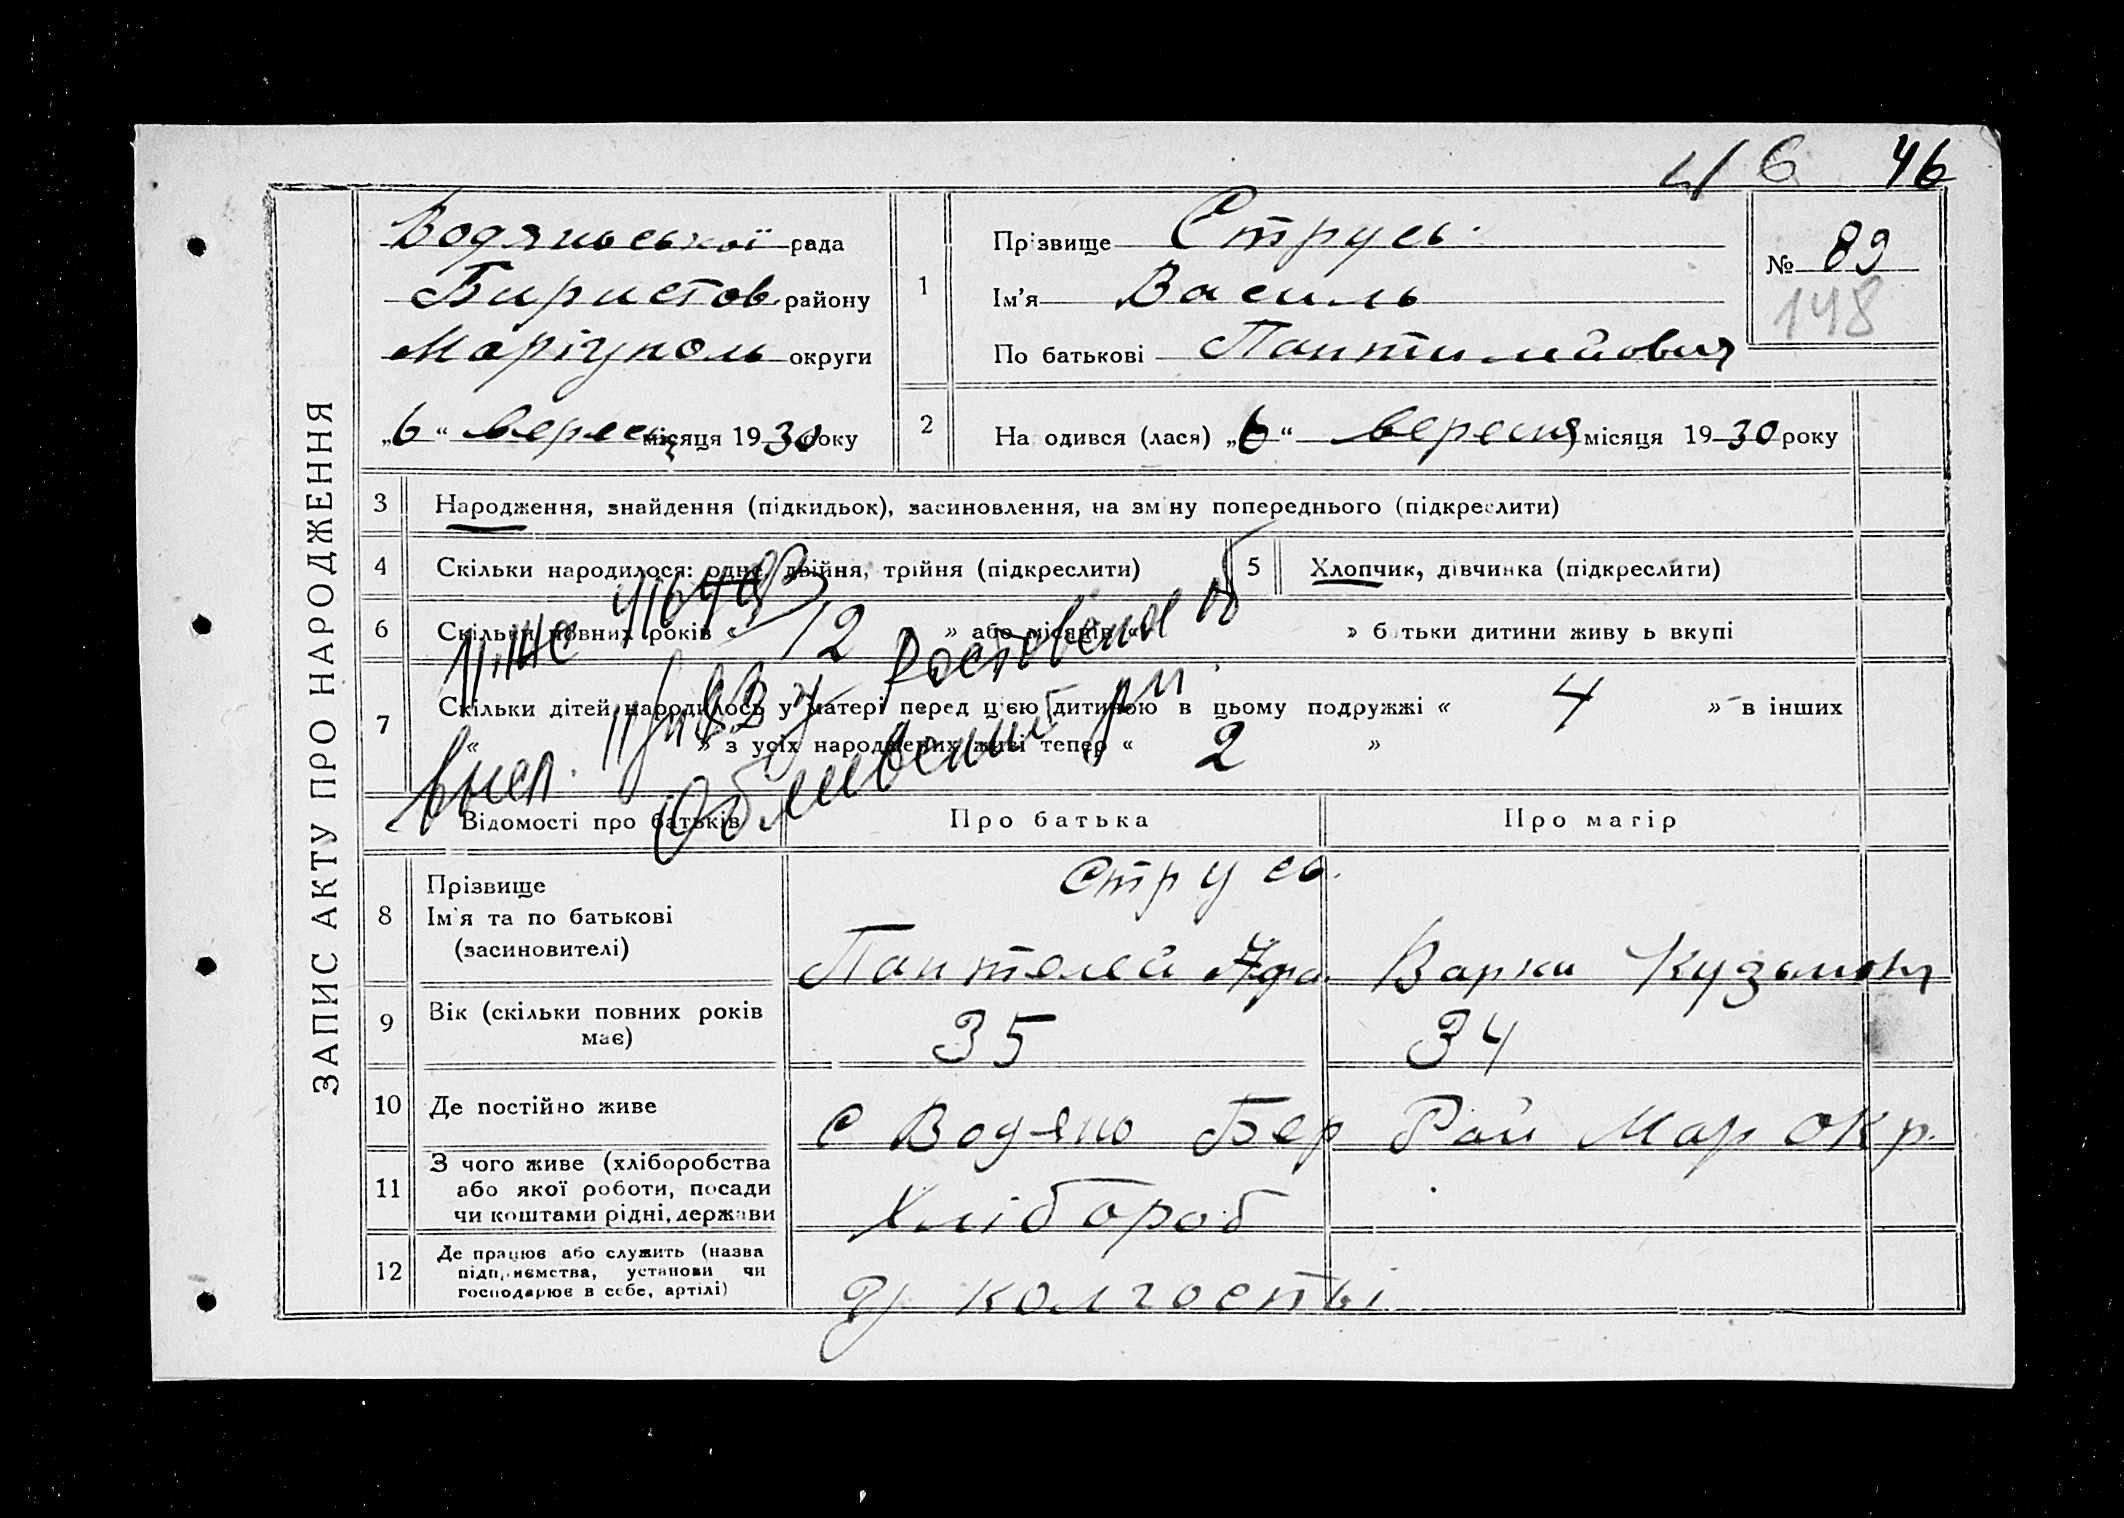 46 46
ЗАПИС АКТУ ПРО НАРОДЖЕННЯ
Водяньської рада
Биристов. району
Маріуполь округи
„6“ вересня місяця 1930 року
1
Прізвище Струсь.
Ім’я Василь
По батькові Пантилийович
№ 89
148
2 Народився (лася) „6“ вересня місяця 1930 року
3 Народження, знайдення (підкидьок), засиновлення, на зміну попереднього (підкреслити)
4 Скільки народилося: одне, двійня, трійня (підкреслити)
5 Хлопчик, дівчинка (підкреслити)
6 Скільки повних років « » або місяців « » батьки дитини живуть вкупі
7 Скільки дітей народилось у матері перед цією дитиною в цьому подружжі « 4 » в інших
« » з усіх народжених живі тепер « 2 »
12
Ростовская об
Обливский р-н
Відомості про батьків
Про батька
Про матір
8 Прізвище
Ім’я та по батькові
(засиновителі)
Струсь.
Пантелей Афа.
Варка Кузьмовн
9 Вік (скільки повних років
має)
35
34
10 Де постійно живе
с Водяно Бер Рай Мар окр.
11 З чого живе (хліборобства
або якої роботи, посади
чи коштами рідні, держави
Хлібороб
12 Де працює або служить (назва
підприємства, установи чи
господарює в себе, артілі)
У колгоспі